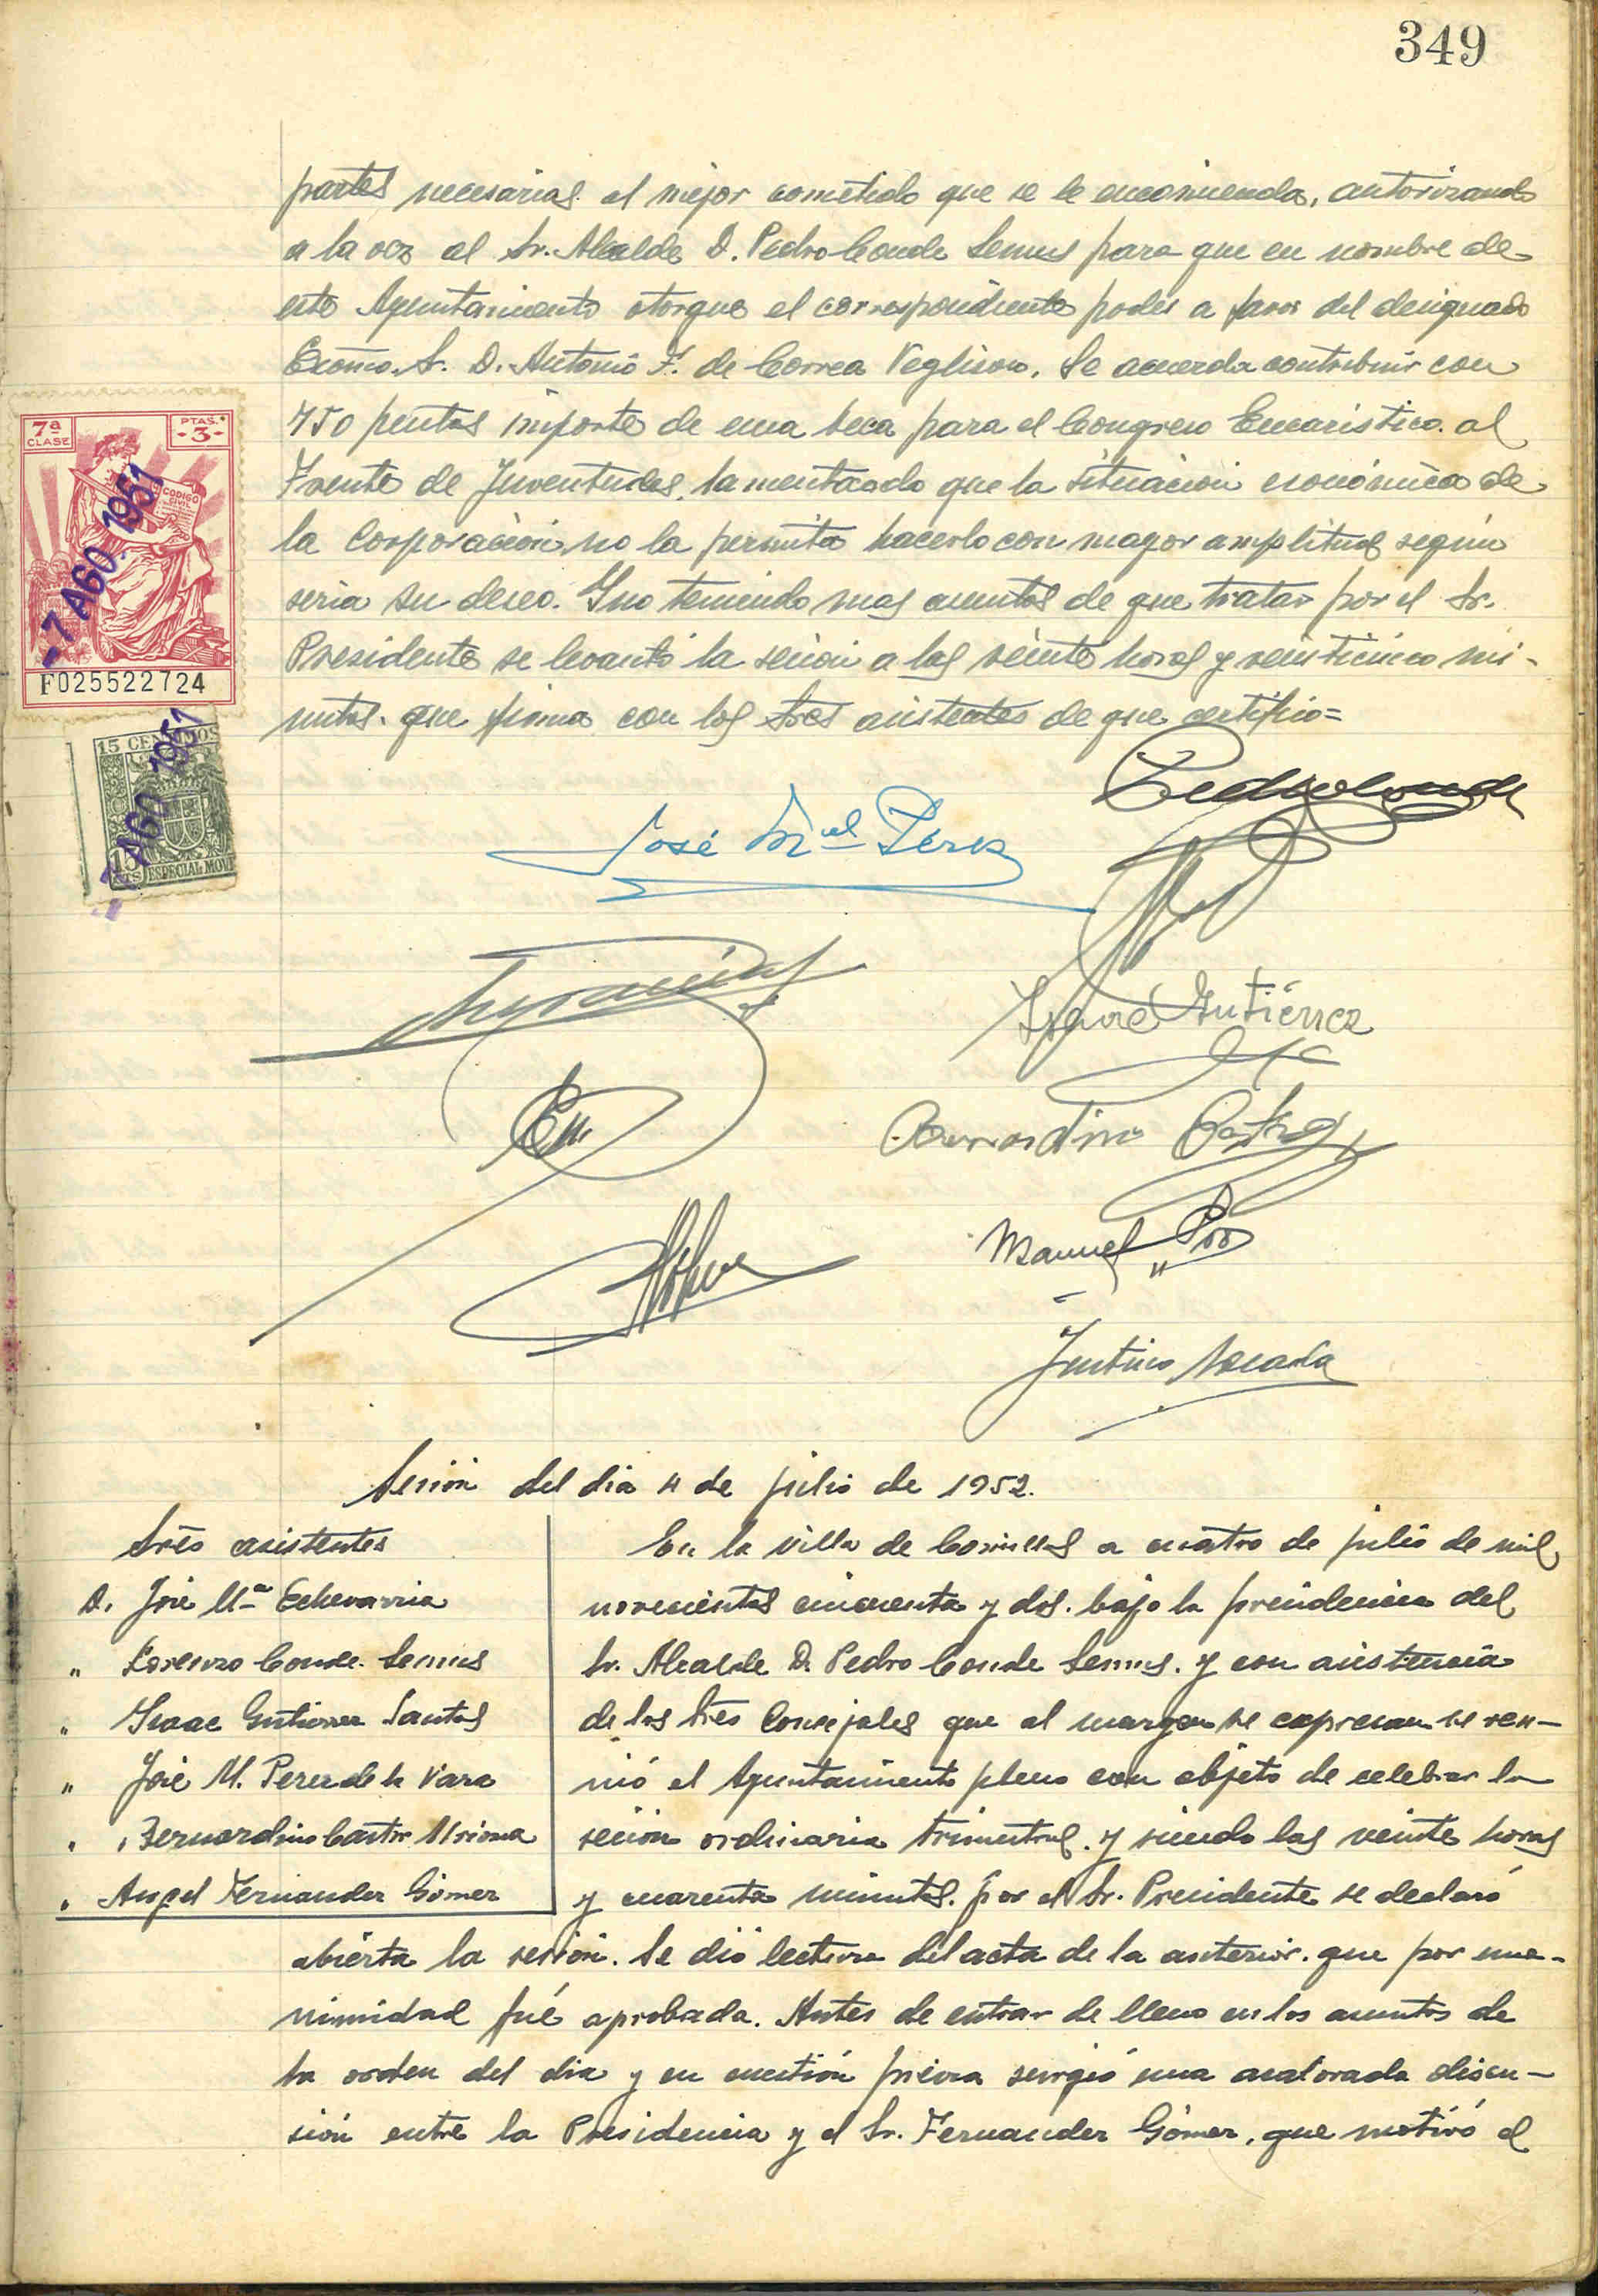 349
partes necesarias al mejor cometido que se le encomienda, autorizando
a la vez al Sr. Alcalde D. Pedro Conde Lemus para que en nombre de
este Ayuntamiento otorgue el correspondiente poder a favor del designado
Excmo. Sr. D. Antonio F. de Correa Veglison. Se acuerda contribuir con
750 pesetas importe de una beca para el Congreso Eucarístico. al
Frente de Juventudes, lamentando que la situación económica de
la Corporación no la permita hacerlo con mayor amplitud según
seria su deseo. Y no teniendo mas asuntos de que tratar por el Sr.
Presidente se levantó la sesión a las veinte horas y veinticinco mi-
nutos. que firma con los Sres asistentes de que certifico=
7ª CLASE
PTAS. -3-
CODIGO CIVIL
-7 AGO. 1951
F025522724
15 CENTIMOS
-7 AGO 1951
15 CTS ESPECIAL MOVIL
Pedro Conde
José Mel Pérez
Isaac Gutiérrez
Bernardino Castro
Manuel
Justino
Sesión del dia 4 de julio de 1952.
Sres asistentes
D. José Mª Echevarria
" Lorenzo Conde Lemus
" Isaac Gutierrez Santos
" José M. Perez de la Vara
" Bernardino Castro
" Angel Fernandez Gómez
En la villa de Comillas a cuatro de julio de mil
novecientos cincuenta y dos. bajo la presidencia del
Sr. Alcalde D. Pedro Conde Lemus. y con asistencia
de los Sres Concejales que al margen se expresan se reu-
nió el Ayuntamiento pleno con objeto de celebrar la
sesion ordinaria trimestral. y siendo las veinte horas
y cuarenta minutos. por el Sr. Presidente se declaró
abierta la sesión. Se dió lectura del acta de la anterior. que por una-
nimidad fué aprobada. Antes de entrar de lleno en los asuntos de
la orden del dia y en cuestión previa surgió una acalorada discu-
sión entre la Presidencia y el Sr. Fernandez Gómez, que motivó el